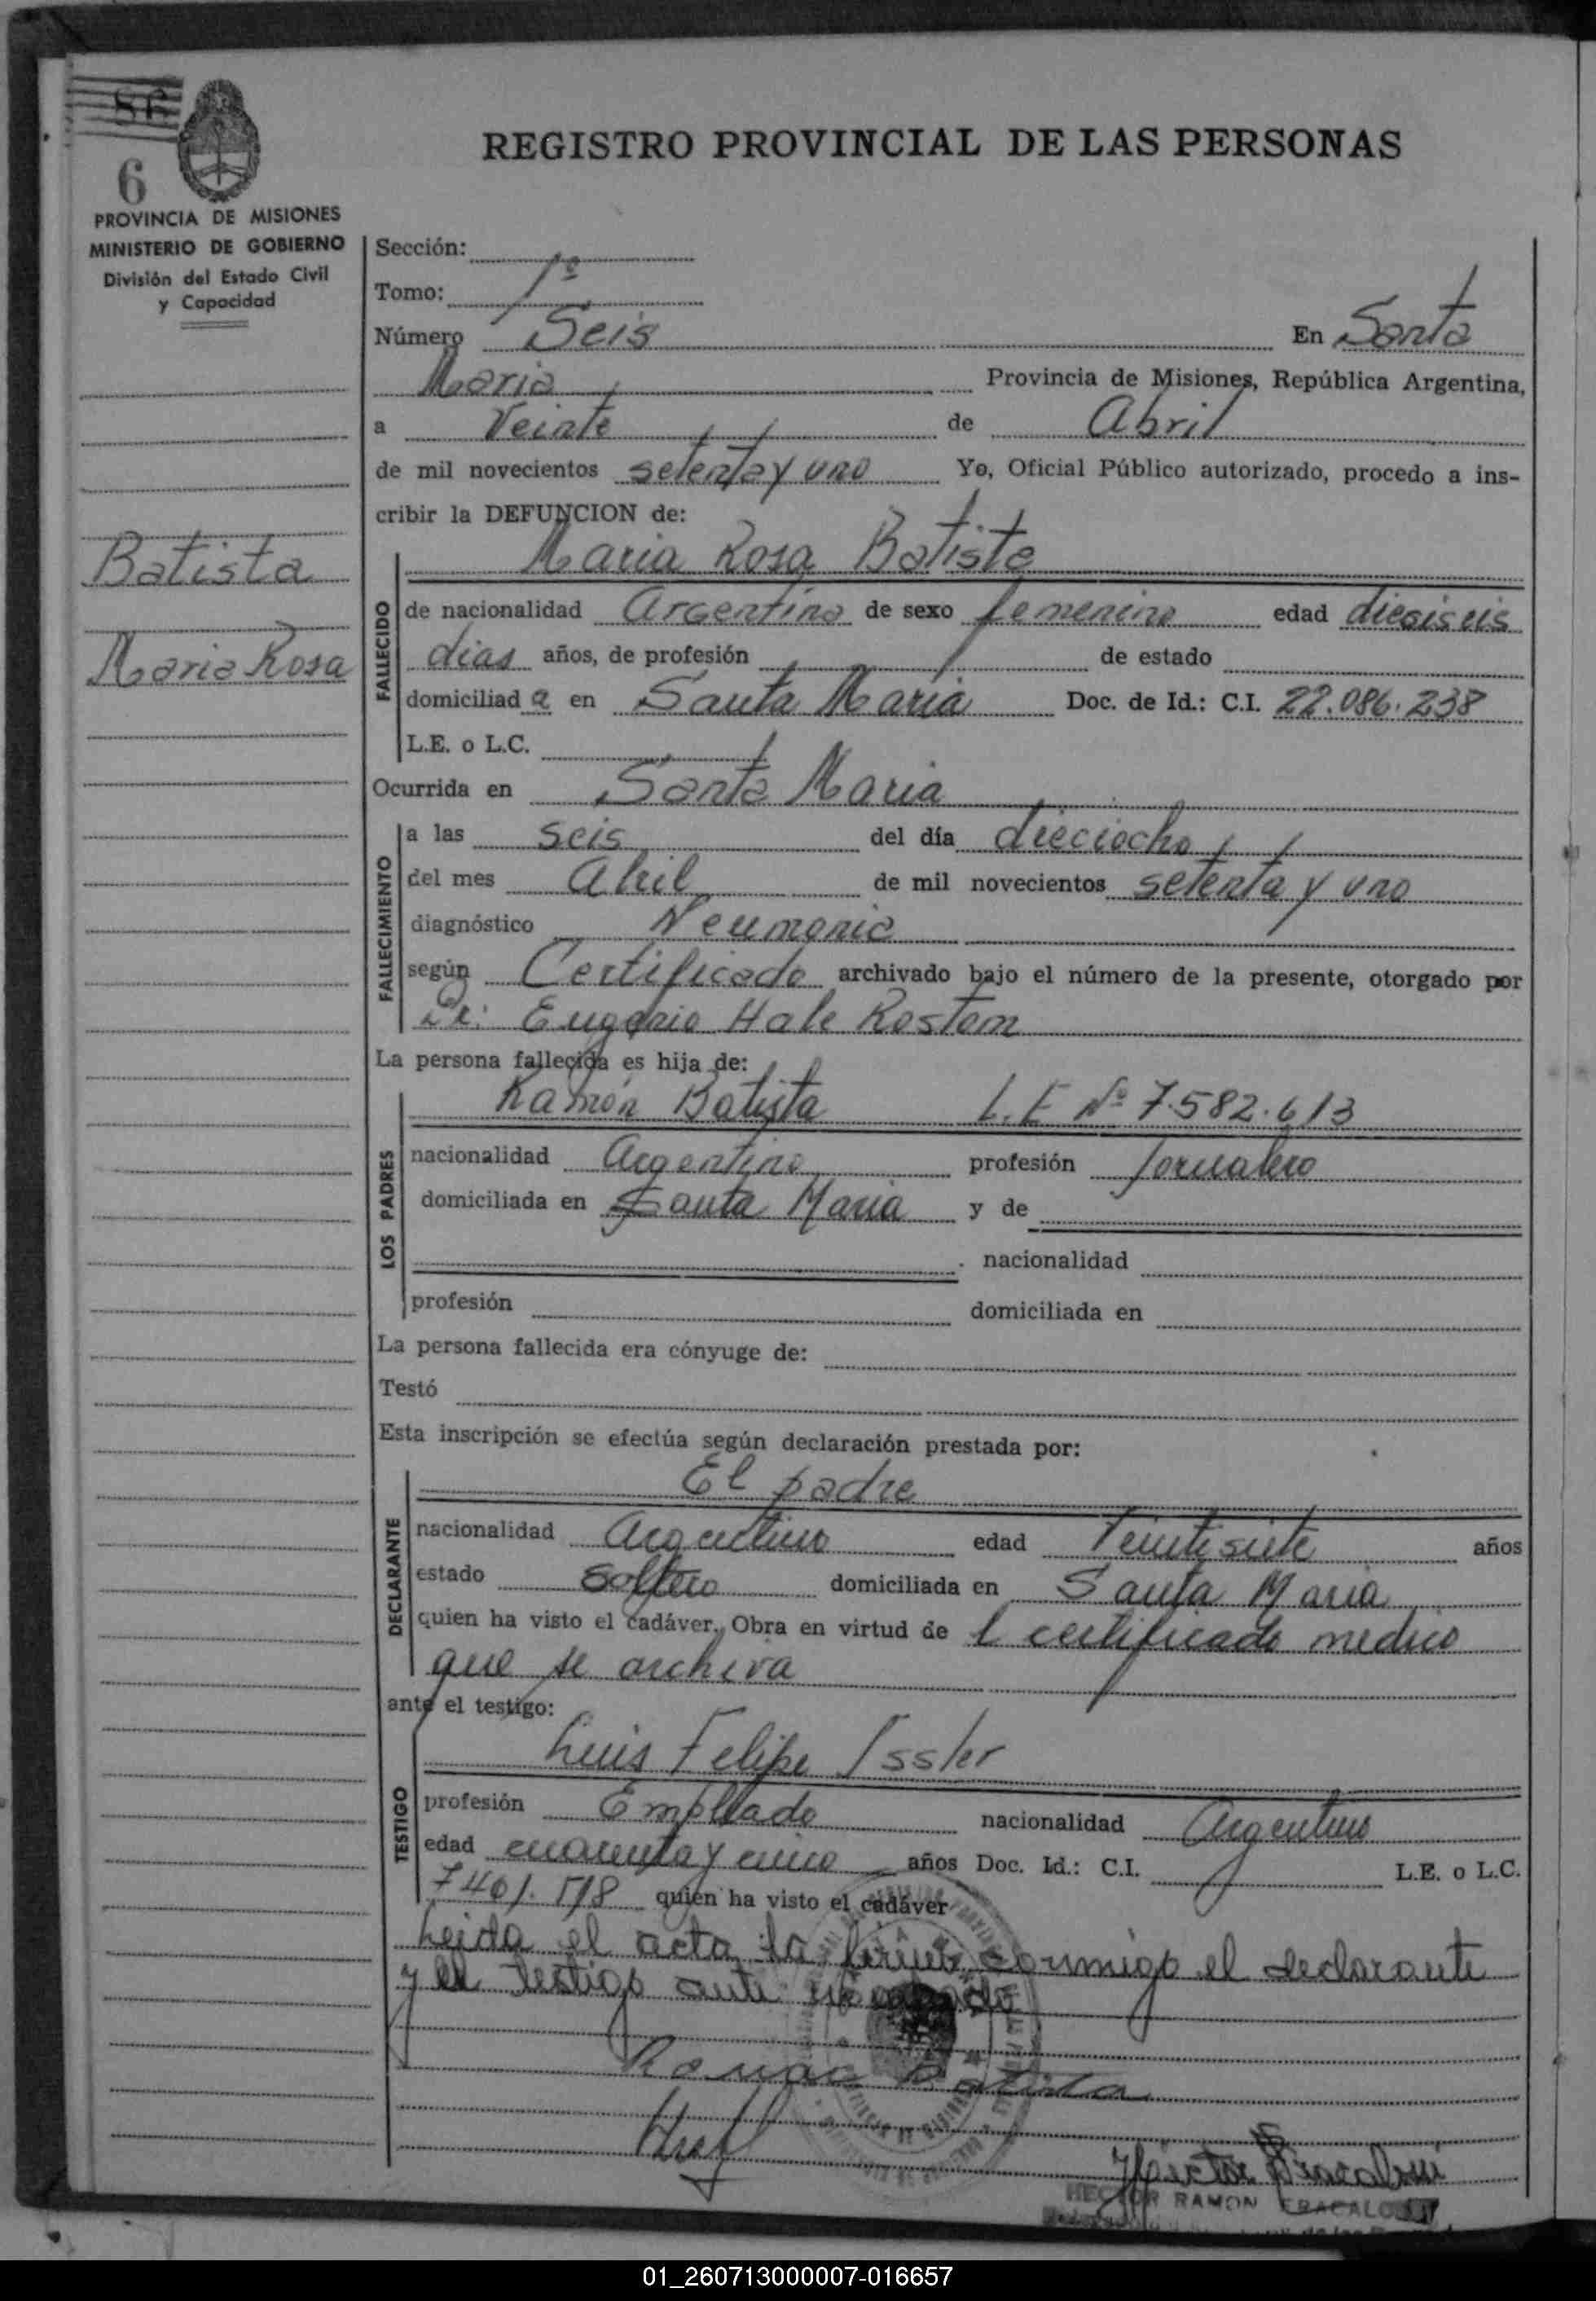 86
6
PROVINCIA DE MISIONES
MINISTERIO DE GOBIERNO
División del Estado Civil
y Capacidad
Batista
Maria Rosa
REGISTRO PROVINCIAL DE LAS PERSONAS
Sección:
Tomo: 1º
Número Seis En Santa
Maria Provincia de Misiones, República Argentina,
a Veinte de Abril
de mil novecientos setenta y uno Yo, Oficial Público autorizado, procedo a ins-
cribir la DEFUNCION de:
Maria Rosa Batista
FALLECIDO
de nacionalidad Argentina de sexo femenino edad dieciseis
dias años, de profesión de estado
domiciliad a en Santa Maria Doc. de Id.: C.I. 22.086.238
L.E. o L.C.
Ocurrida en Santa Maria
FALLECIMIENTO
a las seis del día dieciocho
del mes Abril de mil novecientos setenta y uno
diagnóstico Neumonia
según Certificado archivado bajo el número de la presente, otorgado por
Dr. Eugenio Hale Rostom
La persona fallecida es hija de:
LOS PADRES
Ramón Batista L.E Nº 7.582.613
nacionalidad Argentino profesión Jornalero
domiciliada en Santa Maria y de
nacionalidad
profesión domiciliada en
La persona fallecida era cónyuge de:
Testó
Esta inscripción se efectúa según declaración prestada por:
DECLARANTE
El padre
nacionalidad Argentino edad Veintisiete años
estado Soltero domiciliada en Santa Maria
quien ha visto el cadáver. Obra en virtud de l certificado medico
que se archiva
ante el testigo:
TESTIGO
Luis Felipe Issler
profesión Empleado nacionalidad Argentino
edad cuarenta y cinco años Doc. Id.: C.I. L.E. o L.C.
7461.518 quien ha visto el cadáver
Leida el acta la firman conmigo el declarante
y el testigo ante
Ramon Batista
HECTOR RAMON
01_260713000007-016657